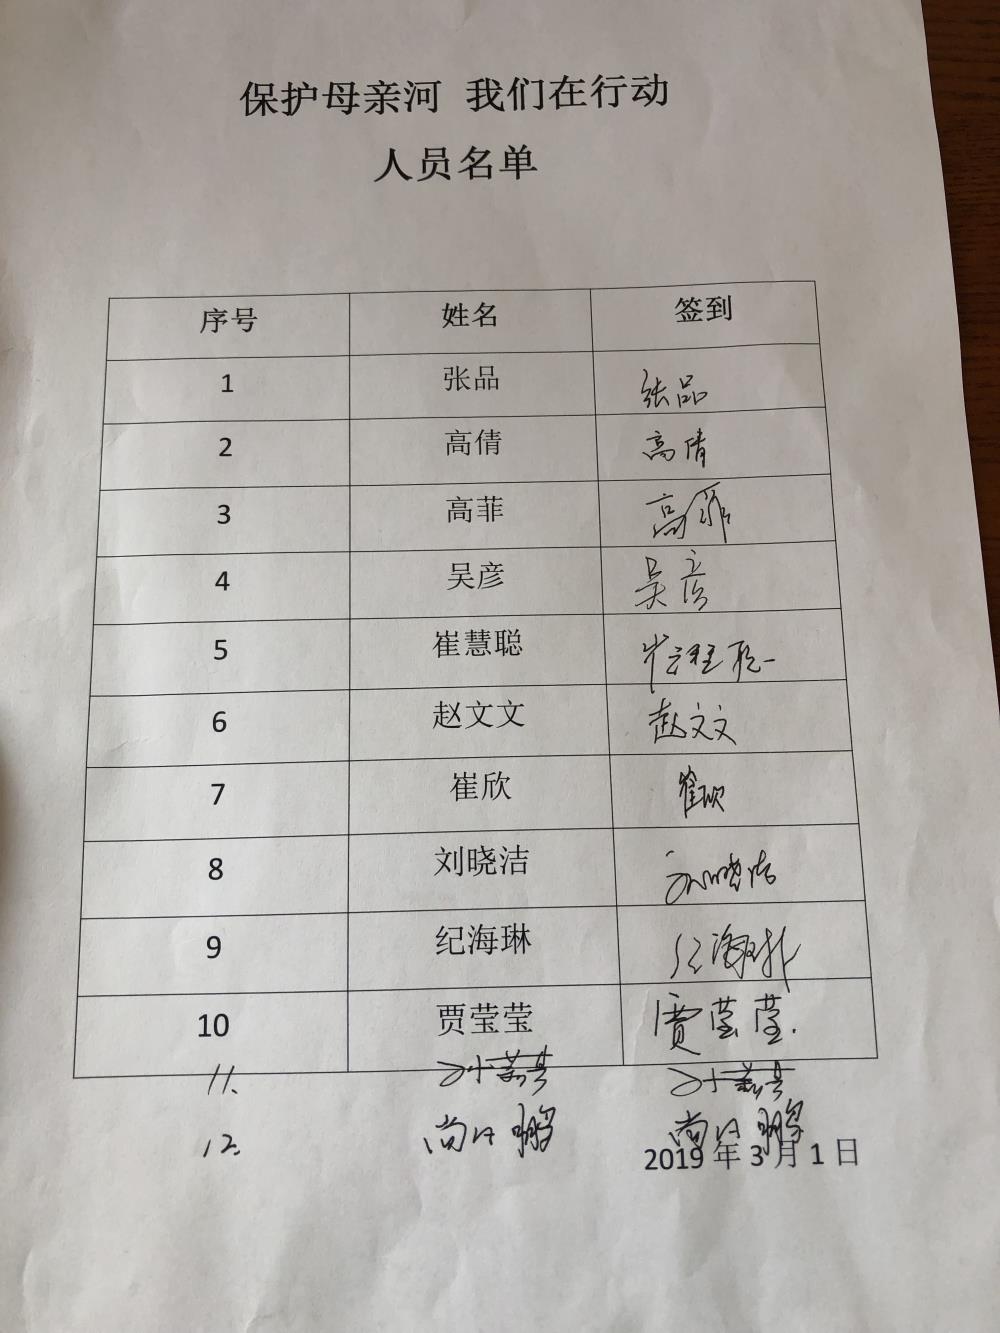 保护母亲河 我们在行动
人员名单
序号 姓名 签到
1 张品 张品
2 高倩 高倩
3 高菲 高菲
4 吴彦 吴彦
5 崔慧聪 崔慧聪
6 赵文文 赵文文
7 崔欣 崔欣
8 刘晓洁 刘晓洁
9 纪海琳 纪海琳
10 贾莹莹 贾莹莹
11.
12.
2019 年 3 月 1 日